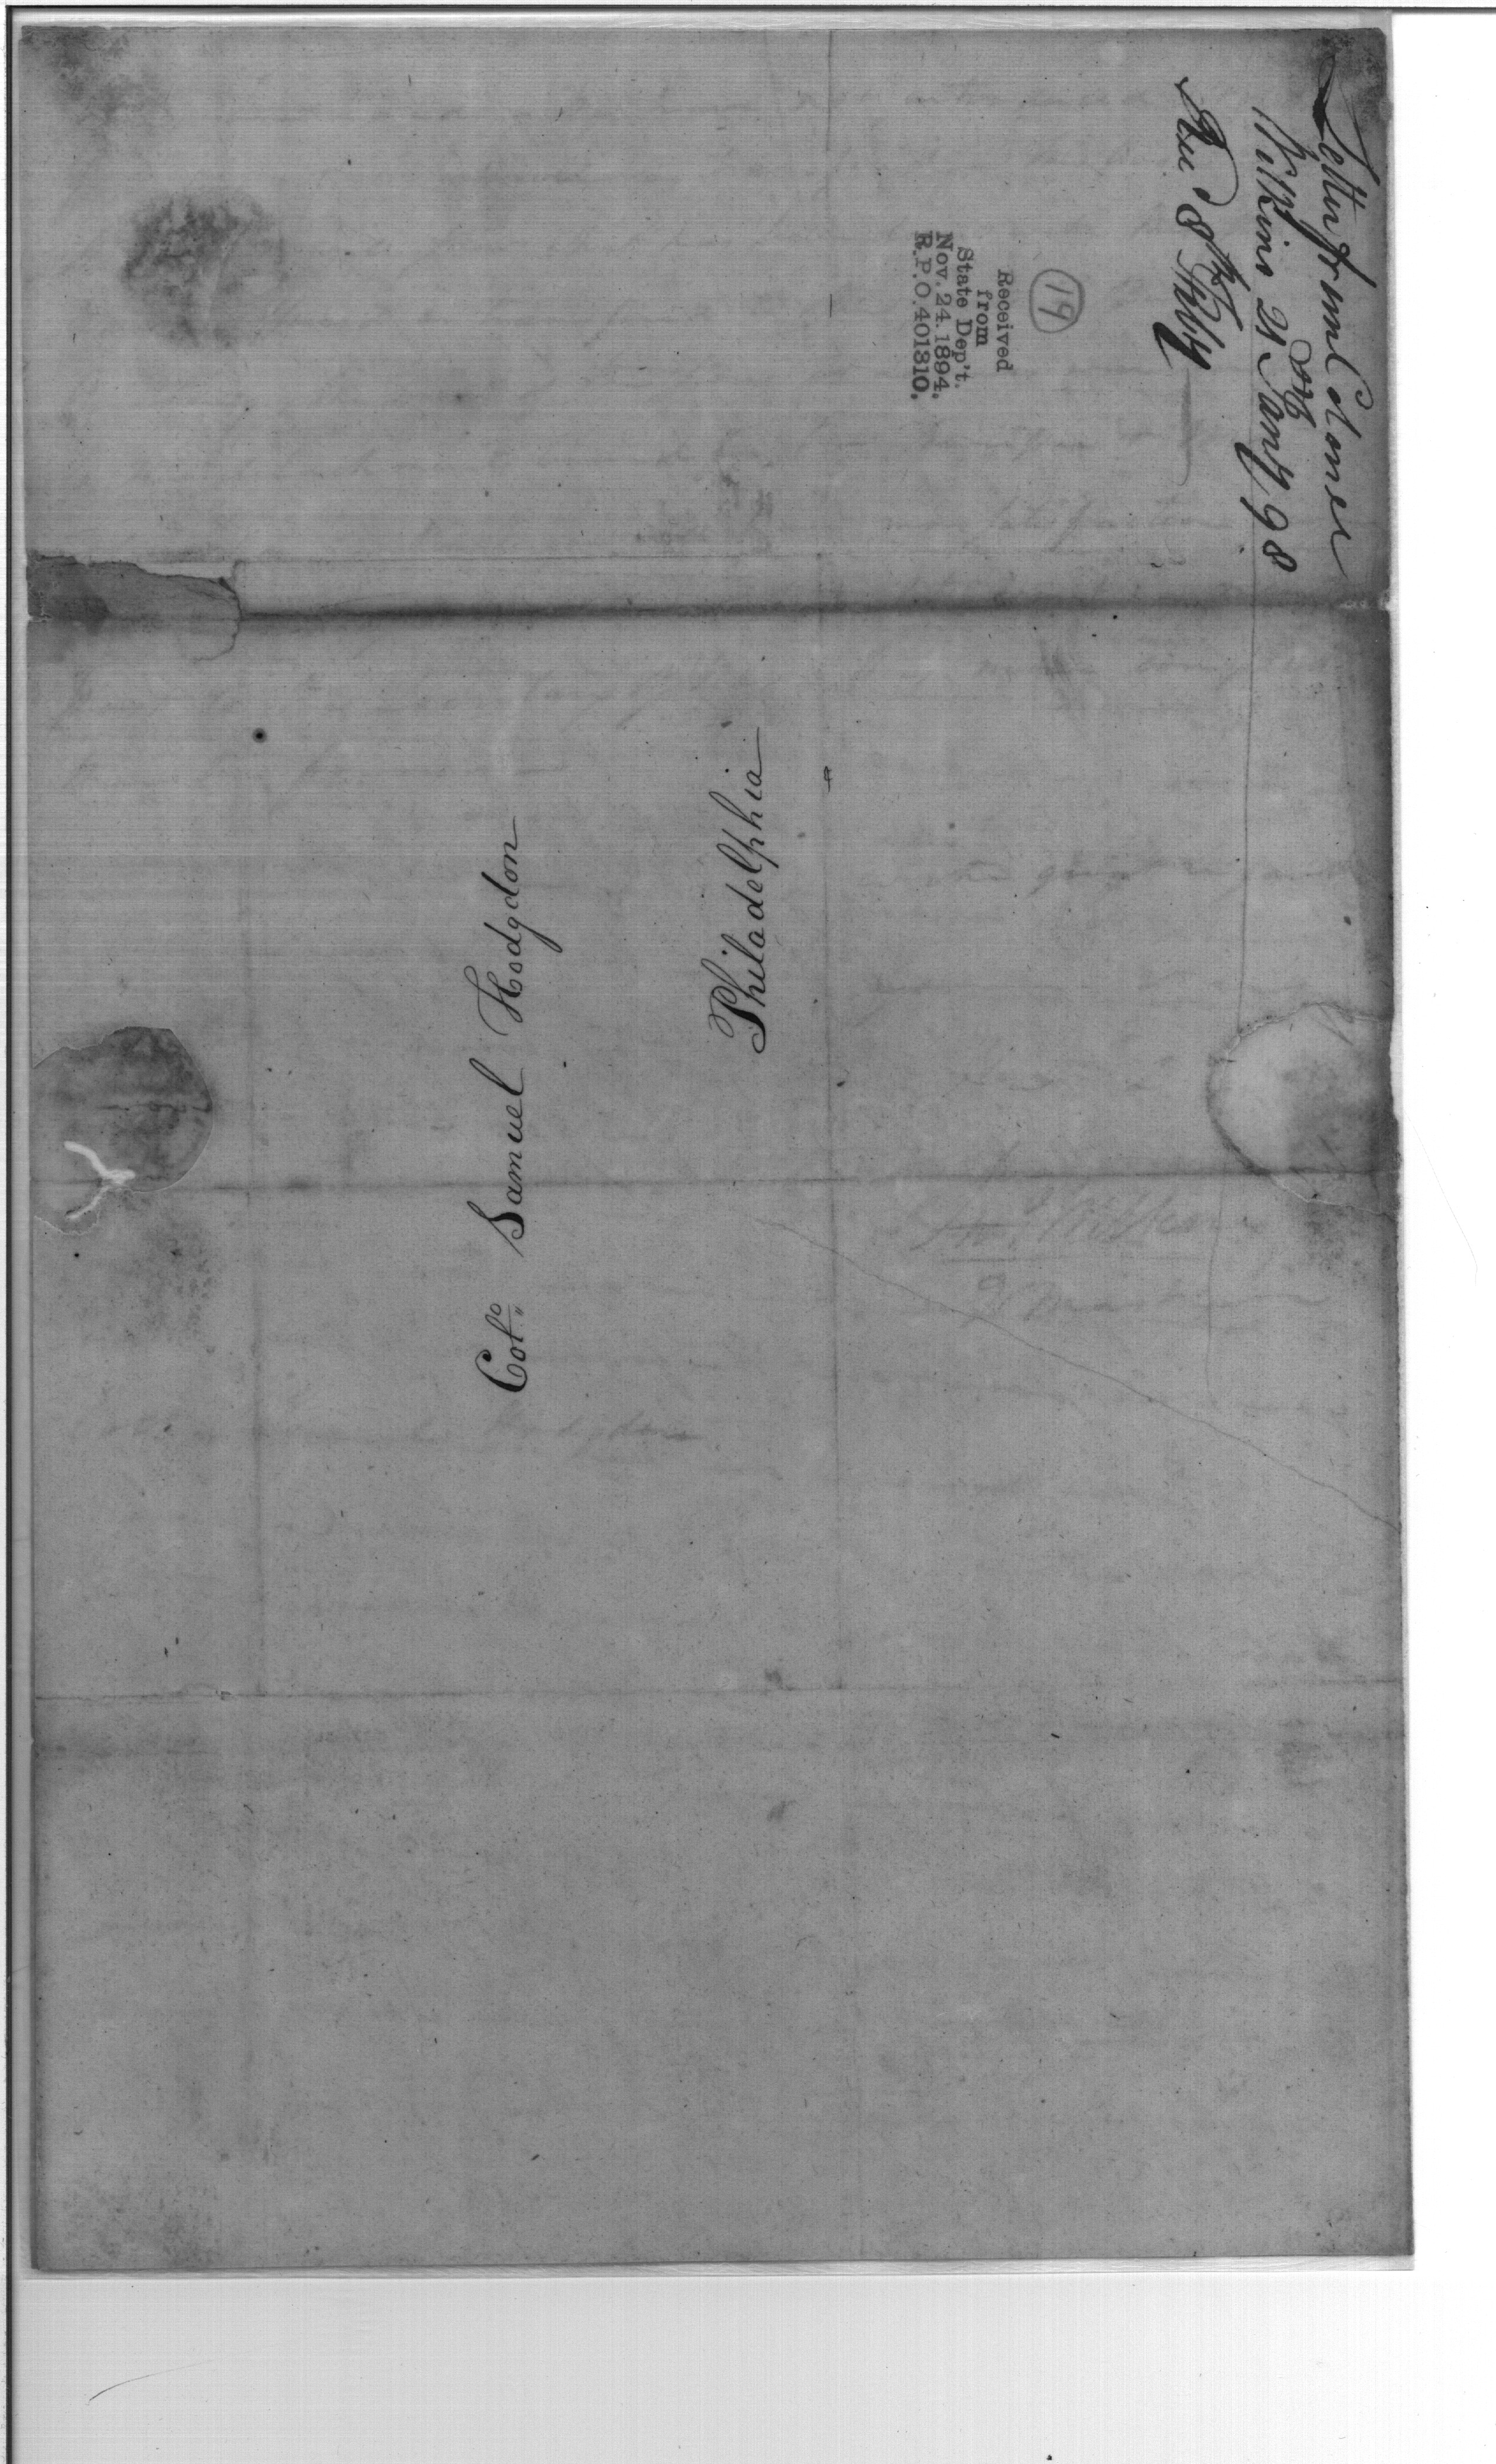 Letter from Colonel
Wilkins 21st Jany 98
Rec'd 8th Feby
19
Received
from
State Dep't.
Nov. 24. 1894.
R.P.O. 401310.
Colo. Samuel Hodgdon
Philadelphia